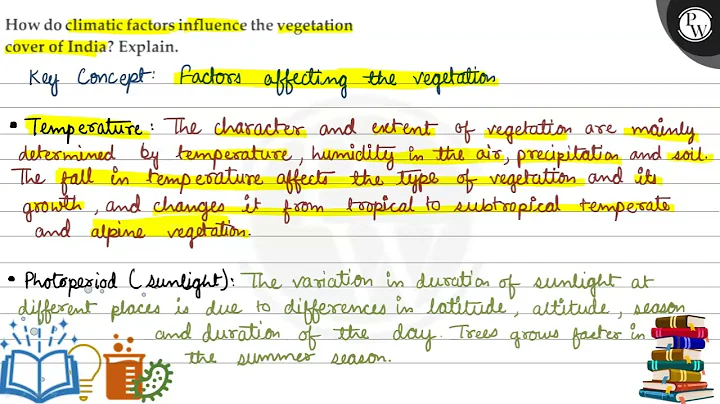 How do climatic factors influence the vegetation
cover of India? Explain.
Key Concept: Factors affecting the vegetation
• Temperature: The character and extent of vegetation are mainly
determined by temperature, humidity in the air, precipitation and soil.
The fall in temperature affects the type of vegetation and its
growth, and changes it from tropical to subtropical temperate
and alpine vegetation.
• Photoperiod (sunlight): The variation in duration of sunlight at
different places is due to differences in latitude, altitude, season
and duration of the day. Trees grows faster in
the summer season.
PW